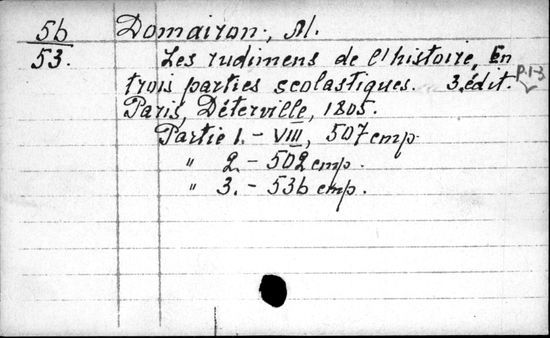 56
53.
Domairon, M.
Les rudimens de l'histoire, En
trois parties scolastiques. 3. édit. p. 1-3
Paris, Déterville, 1805.
Partie 1. - VIII, 507 стр.
" 2. - 502 стр.
" 3. - 536 стр.